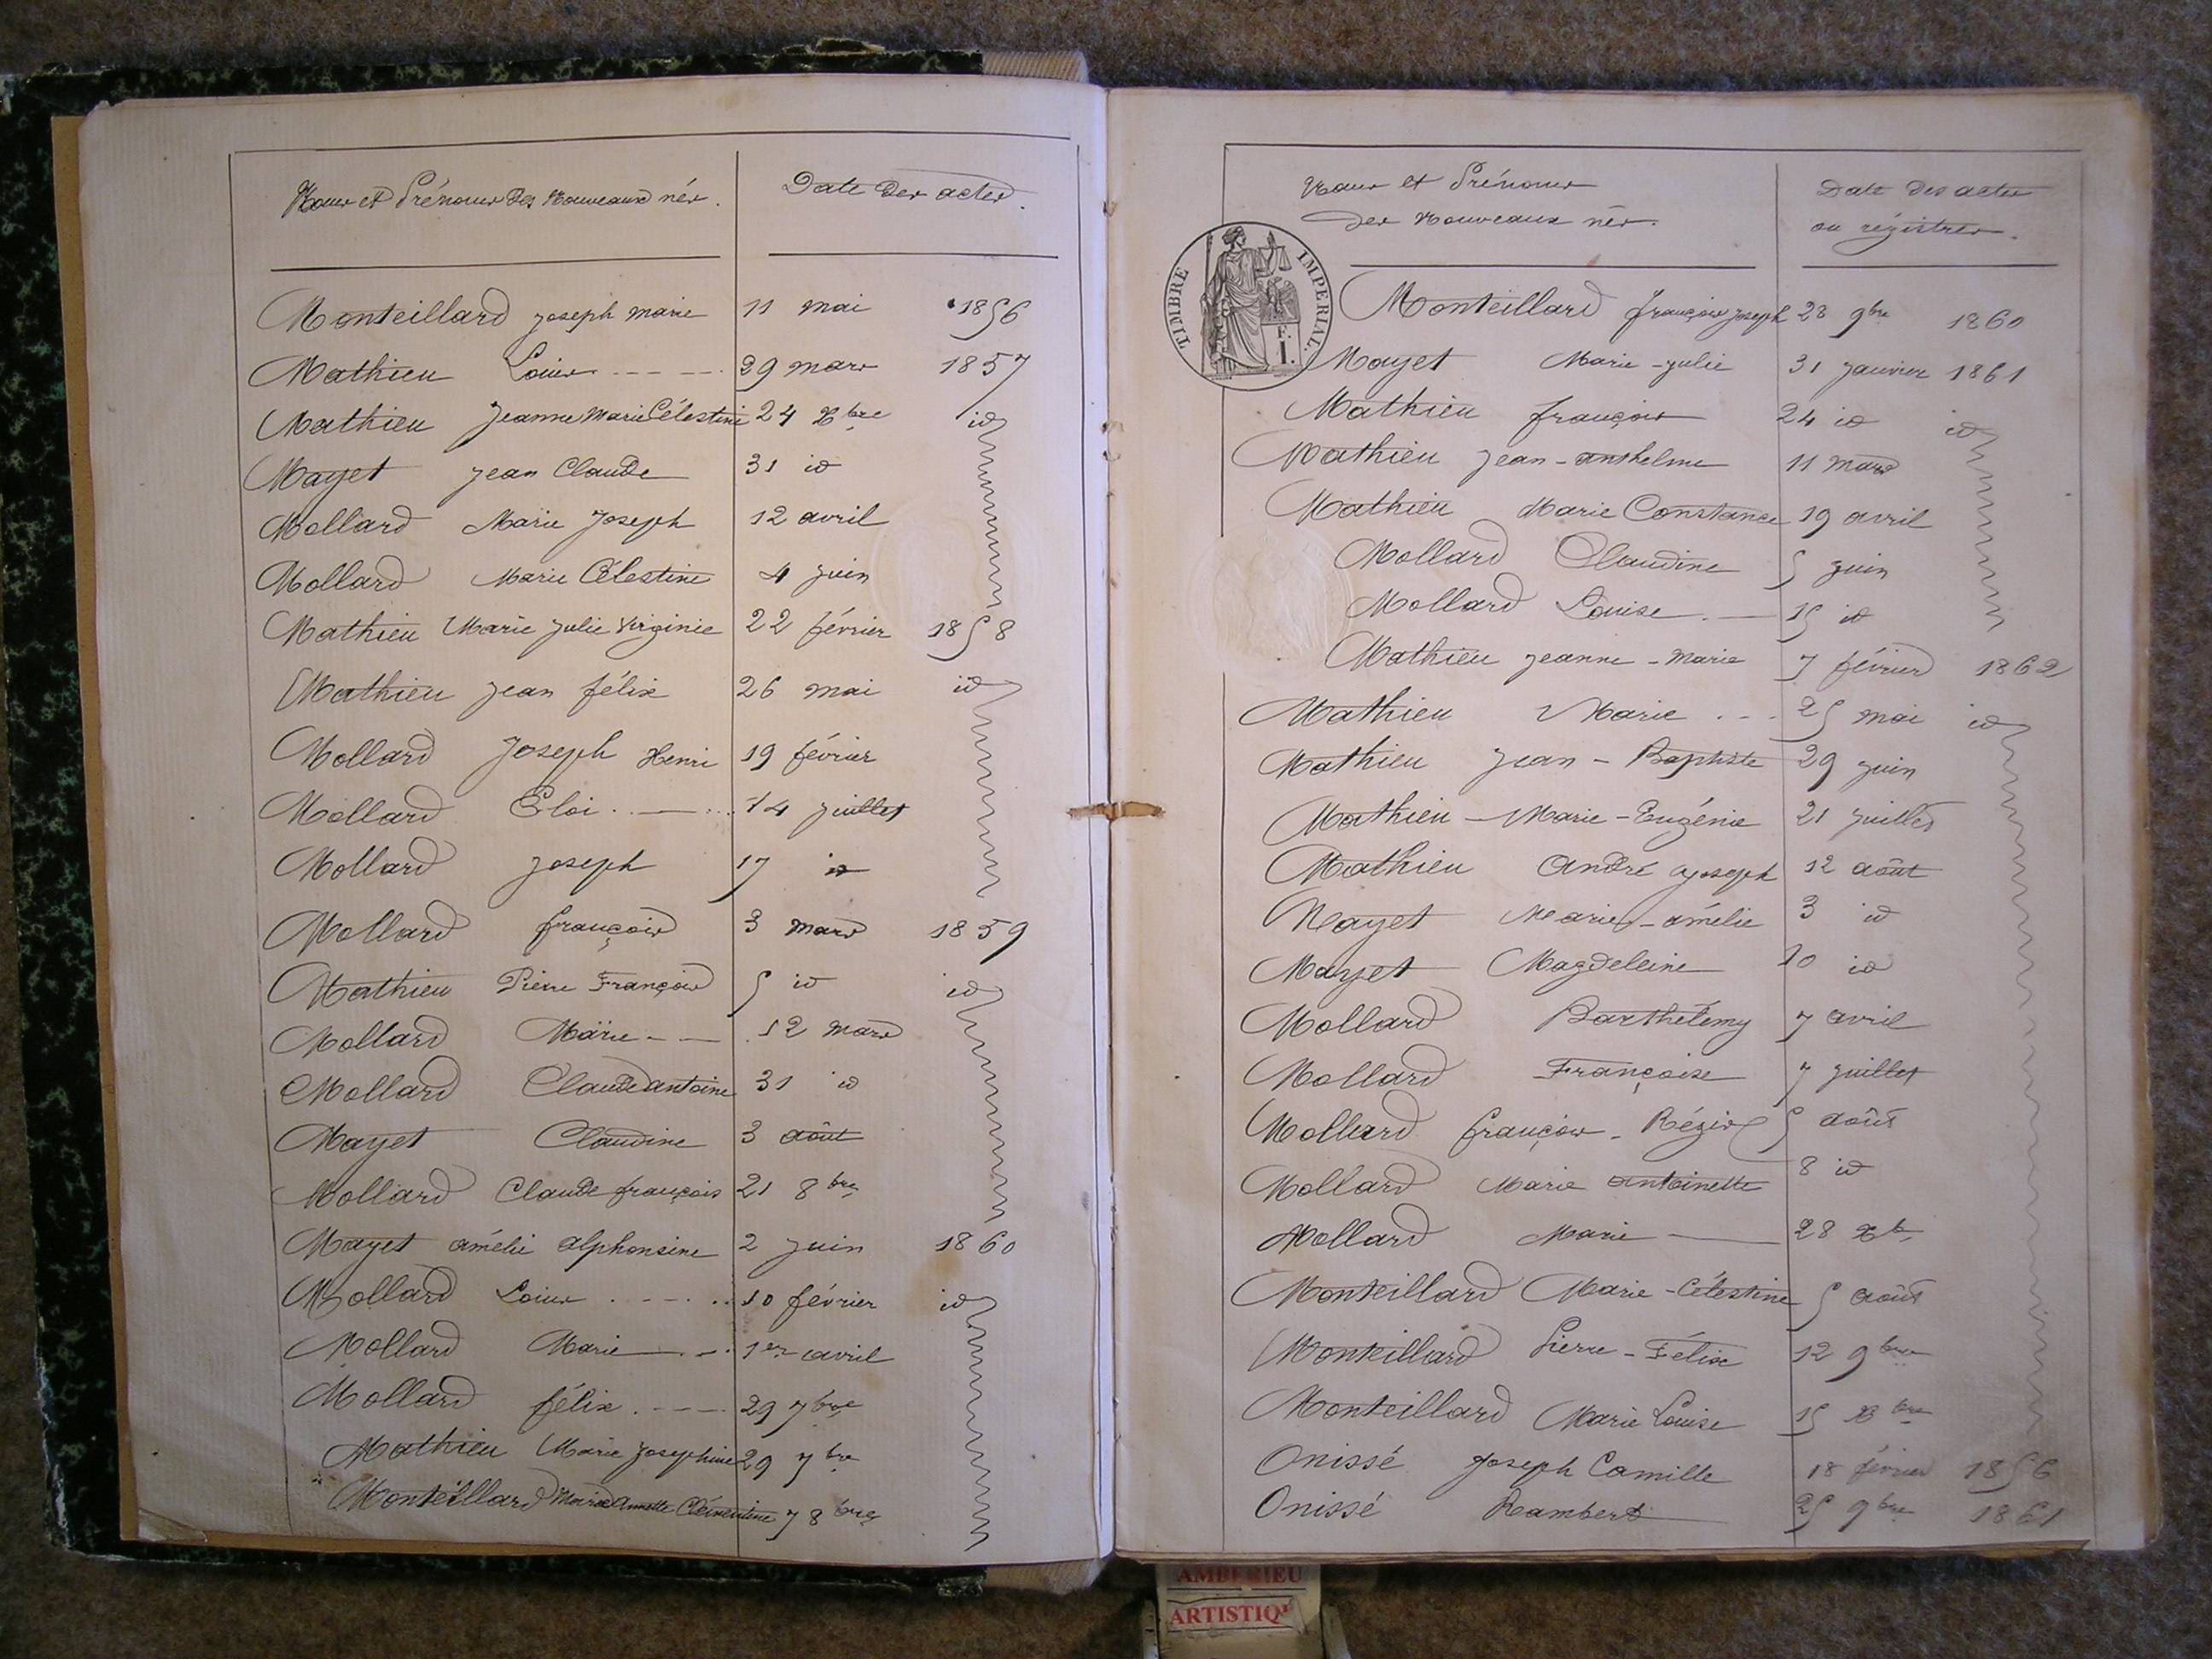 Noms et Prénoms des Nouveaux nés.
Date des actes.
Monteillard Joseph Marie 11 mai 1856
Mathieu Louis 29 mars 1857
Mathieu Jeanne Marie Célestine 24 Xbre id
Mayet Jean Claude 31 id
Mollard Marie Joseph 12 avril
Mollard Marie Célestine 4 juin
Mathieu Marie Julie Virginie 22 février 1858
Mathieu Jean félix 26 mai id
Mollard Joseph Henri 19 février
Mollard Eloi 14 juillet
Mollard Joseph 17 id
Mollard françois 3 mars 1859
Mathieu Pierre François 5 id id
Mollard Marie 12 mars
Mollard Claude antoine 31 id
Mayet Claudine 3 août
Mollard Claude françois 21 8bre
Mayet amélie alphonsine 2 juin 1860
Mollard Louis 10 février id
Mollard Marie 1er avril
Mollard félix 29 7bre
Mathieu Marie Josephine 29 7bre
Monteillard Marie Annette Clémentine 7 8bre
Noms et Prénoms
des Nouveaux nés.
Date des actes
au régistres.
TIMBRE IMPERIAL.
E. I.
Monteillard françois Joseph 28 9bre 1860
Mayet Marie-Julie 31 Janvier 1861
Mathieu françois 24 id id
Mathieu Jean-anthelme 11 mars
Mathieu Marie Constance 19 avril
Mollard Claudine 5 juin
Mollard Louise 15 id
Mathieu Jeanne-Marie 7 février 1862
Mathieu Marie 25 mai id
Mathieu Jean-Baptiste 29 juin
Mathieu-Marie-Eugénie 21 juillet
Mathieu André Joseph 12 août
Mayet Marie-amélie 3 id
Mayet Magdeleine 10 id
Mollard Barthélemy 7 avril
Mollard Françoise 7 juillet
Mollard françois-Régis 5 août
Mollard Marie antoinette 8 id
Mollard Marie 28 Xb
Monteillard Marie-Célestine 5 août
Monteillard Pierre-Félix 12 9bre
Monteillard Marie Louise 15 Xbre
Onissé Joseph Camille 18 février 1856
Onissé Rambert 25 9bre 1861
AMBERIEU
ARTISTIQ